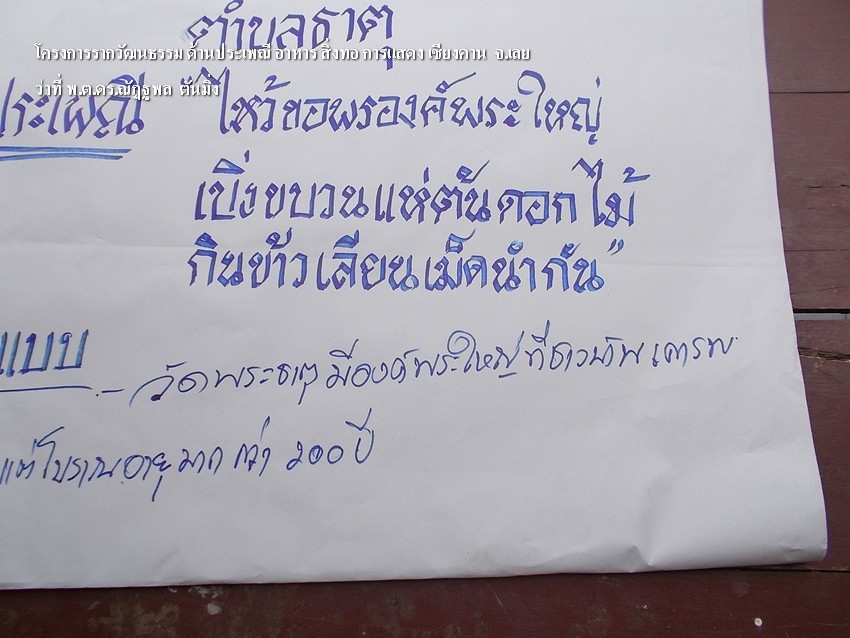 ตำบลธาตุ
โครงการรากวัฒนธรรม ด้านประเพณี อาหาร สิ่งทอ การแสดง เชียงคาน จ.เลย
ว่าที่ พ.ต.ดร.ณัฏฐพล ตันมิ่ง
ประเพณี "ไหว้ขอพรองค์พระใหญ่
เบิ่งขบวนแห่ต้นดอกไม้
กินข้าวเลียนเม็ดนำกัน"
แบบ
- วัดพระธาตุ มีองค์พระใหญ่ ที่ชาวบ้าน เคารพ
แต่โบราณ อายุ มาก กว่า ๒๐๐ ปี